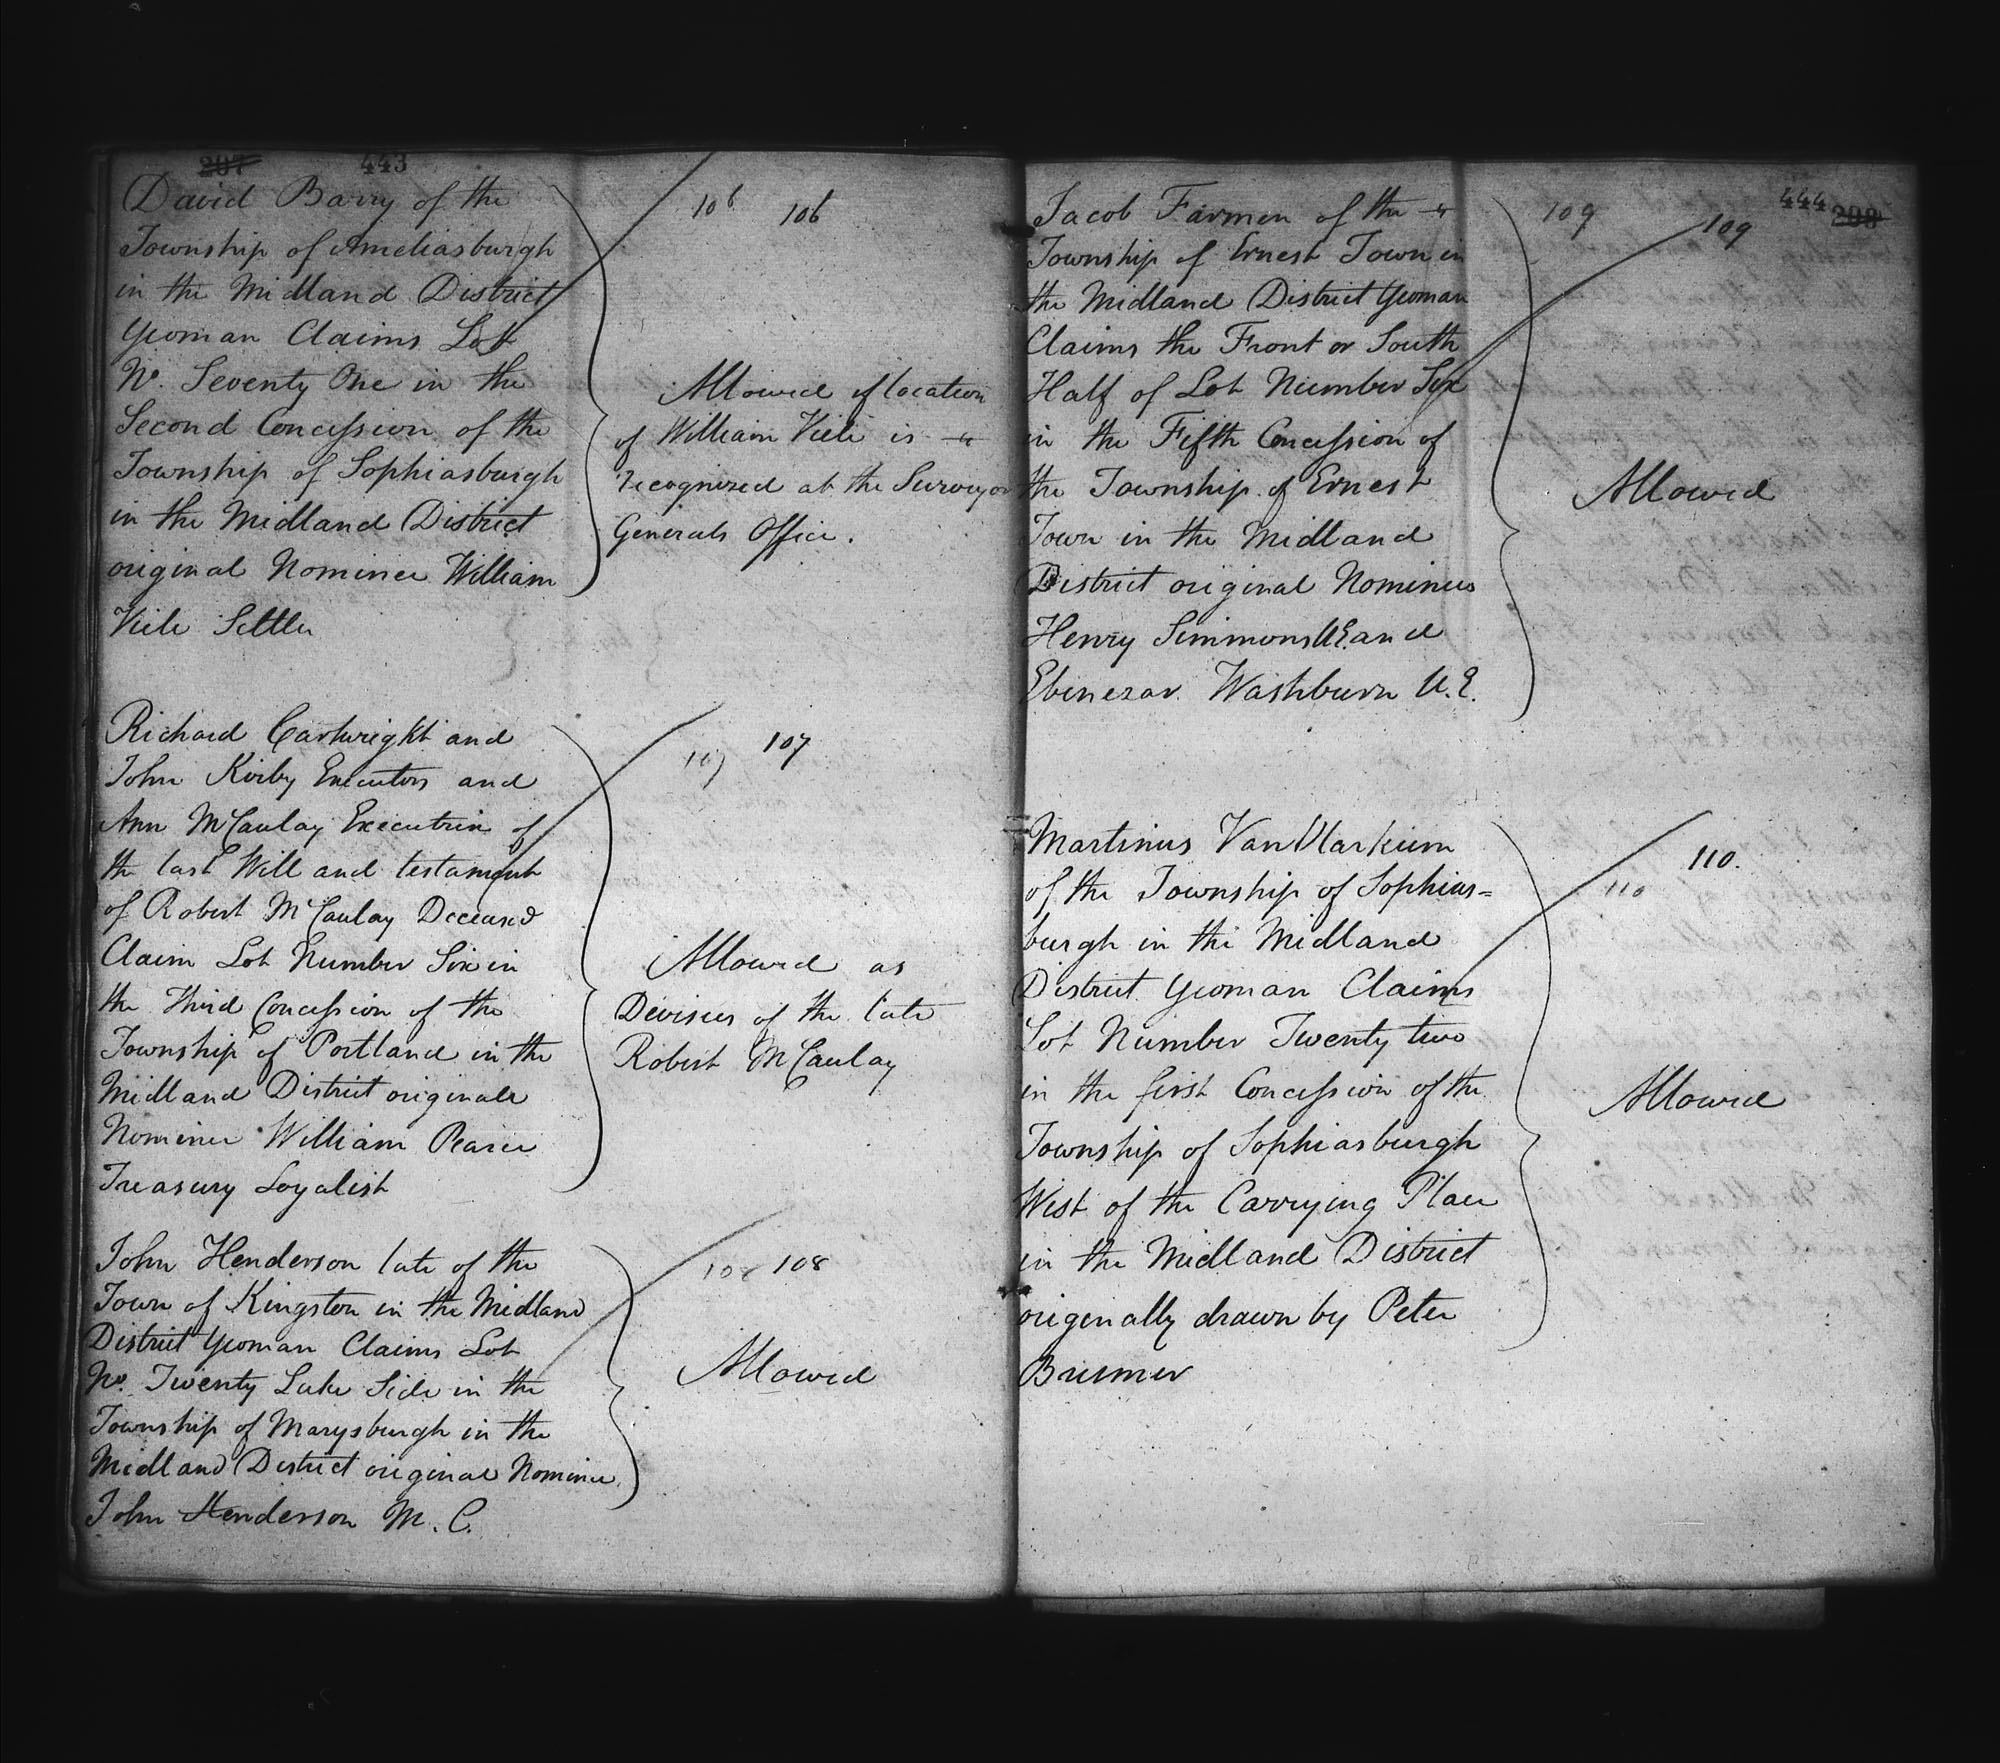 207 443
David Barry of the
Township of Ameliasburgh
in the Midland District
Yeoman Claims Lot
No. Seventy One in the
Second Concession of the
Township of Sophiasburgh
in the Midland District
original Nominee William
Viele Settler
106 106
Allowed if location
of William Viele is
recognized at the Surveyor
Generals Office.
Richard Cartwright and
John Kirby Executors and
Ann McCaulay Executrix of
the last Will and testament
of Robert McCaulay Deceased
Claim Lot Number Six in
the Third Concession of the
Township of Portland in the
Midland District original
Nominee William Pearce
Treasury Loyalist
107 107
Allowed as
Devisees of the late
Robert McCaulay
John Henderson late of the
Town of Kingston in the Midland
District Yeoman Claims Lot
No. Twenty Lake Side in the
Township of Marysburgh in the
Midland District original Nominee
John Henderson M. C.
108 108
Allowed
444 208
Jacob Farmen of the
Township of Ernest Town in
the Midland District Yeoman
Claims the Front or South
Half of Lot Number Six
in the Fifth Concession of
the Township of Ernest
Town in the Midland
District original Nominees
Henry Simmons U.E. and
Ebenezar Washburn U.E.
109 109
Allowed
Martinus VanVlarkium
of the Township of Sophias=
burgh in the Midland
District Yeoman Claims
Lot Number Twenty two
in the first Concession of the
Township of Sophiasburgh
West of the Carrying Place
in the Midland District
originally drawn by Peter
Bresmer
110 110.
Allowed